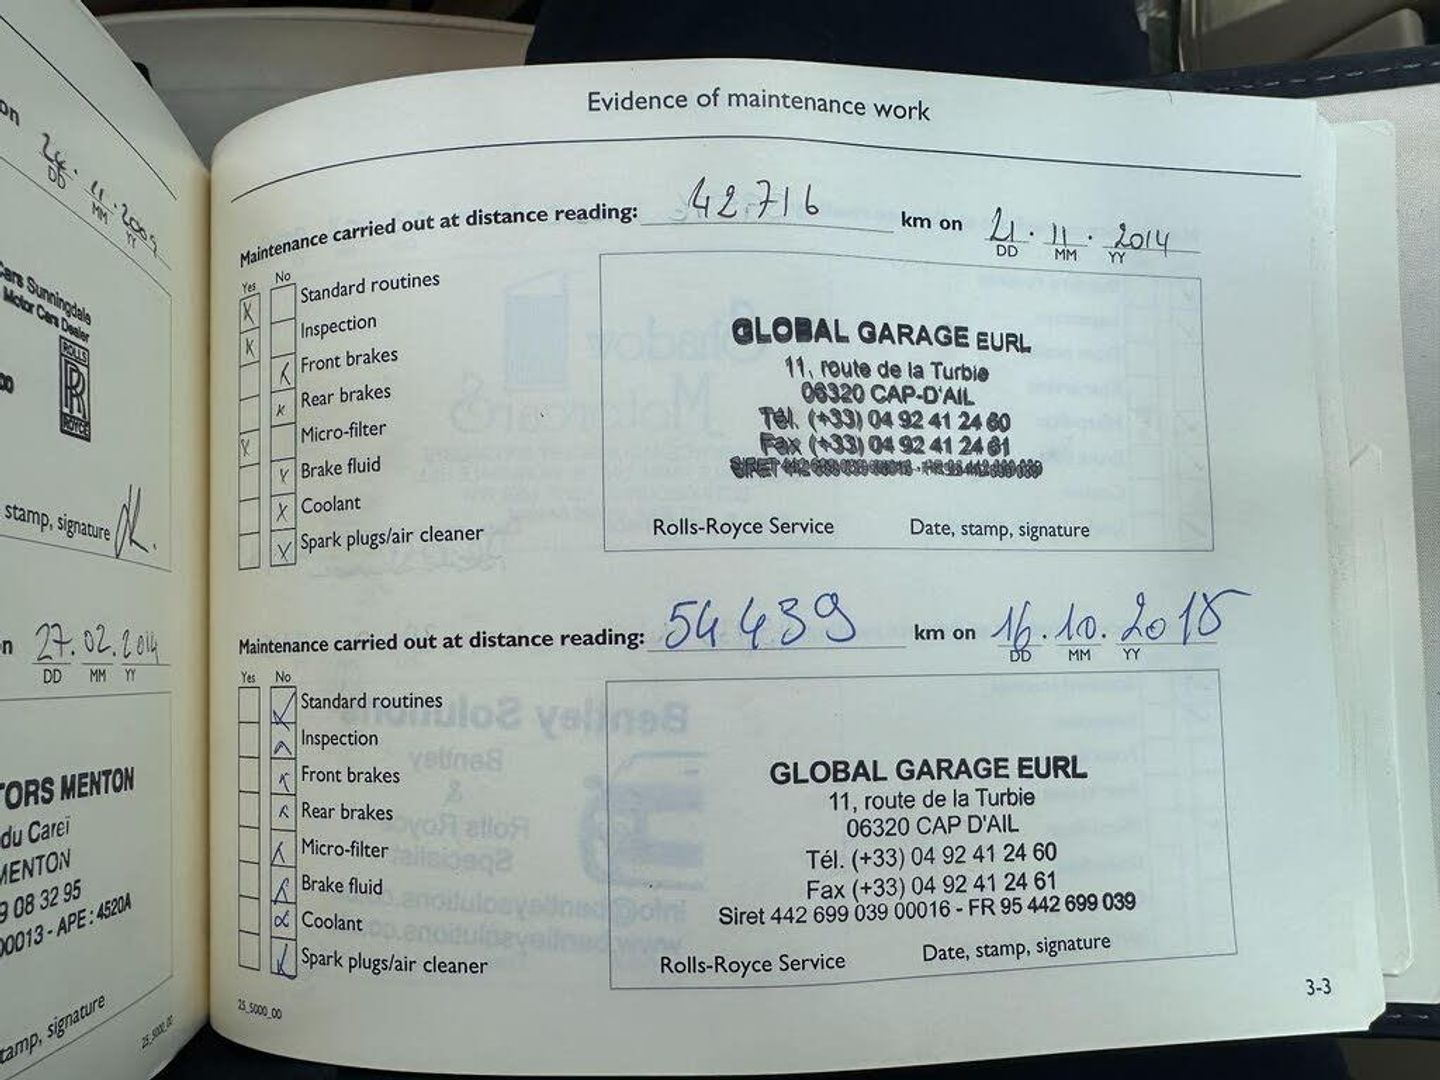 on 24.11.2009
DD MM YY
Cars Sunningdale
Motor Cars Dealer
ROLLS
RR
ROYCE
00
stamp, signature
n 27.02.2014
DD MM YY
TORS MENTON
du Careï
MENTON
9 08 32 95
00013 - APE : 4520A
stamp, signature
25_5000_00
Evidence of maintenance work
Maintenance carried out at distance reading: 42716 km on 21.11.2014
DD MM YY
Yes No
Standard routines
Inspection
Front brakes
Rear brakes
Micro-filter
Brake fluid
Coolant
Spark plugs/air cleaner
GLOBAL GARAGE EURL
11, route de la Turbie
06320 CAP-D'AIL
Tél. (+33) 04 92 41 24 60
Fax (+33) 04 92 41 24 61
SIRET 442 699 039 00016 - FR 95 442 699 039
Rolls-Royce Service Date, stamp, signature
Maintenance carried out at distance reading: 54439 km on 16.10.2015
DD MM YY
Yes No
Standard routines
Inspection
Front brakes
Rear brakes
Micro-filter
Brake fluid
Coolant
Spark plugs/air cleaner
GLOBAL GARAGE EURL
11, route de la Turbie
06320 CAP D'AIL
Tél. (+33) 04 92 41 24 60
Fax (+33) 04 92 41 24 61
Siret 442 699 039 00016 - FR 95 442 699 039
Rolls-Royce Service Date, stamp, signature
25_5000_00
3-3